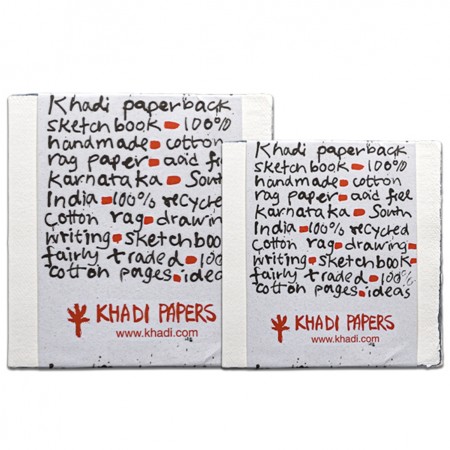 Khadi paperback
sketchbook - 100%
handmade - cotton
rag paper - acid fre
Karnataka - South
India - 100% recycled
cotton rag - drawin
writing - sketchboo
fairly traded - 100
cotton pages - ideas
KHADI PAPERS
www.khadi.com
Khadi paperback
sketchbook - 100%
handmade - cotton
rag paper - acid free
Karnataka - South
India - 100% recycled
cotton rag - drawing -
writing - sketchbook -
fairly traded - 100%
cotton pages - ideas
KHADI PAPERS
www.khadi.com